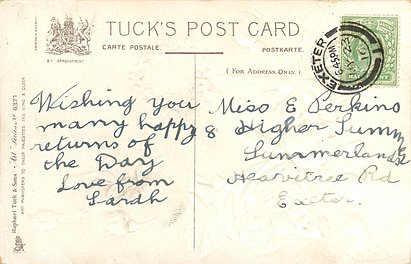 TUCK'S POST CARD
CARTE POSTALE.
POSTKARTE.
BY APPOINTMENT
( FOR ADDRESS ONLY. )
EXETER
Wishing you
many happy
returns of
the Day
Love from
Sarah
Miss E Perkins
8 Higher Summer
Summerlands
Heavitree Rd
Exeter.
Raphael Tuck & Sons' "Art" Series 6371
ART PUBLISHERS TO THEIR MAJESTIES THE KING & QUEEN